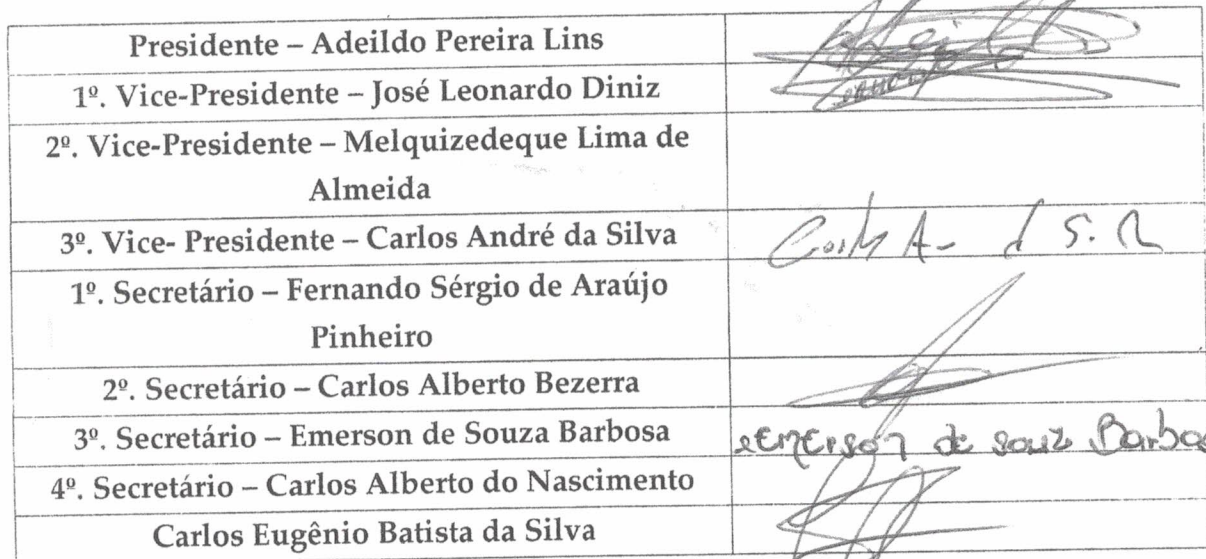 Presidente – Adeildo Pereira Lins
1º. Vice-Presidente – José Leonardo Diniz
2º. Vice-Presidente – Melquizedeque Lima de
Almeida
3º. Vice- Presidente – Carlos André da Silva
1º. Secretário – Fernando Sérgio de Araújo
Pinheiro
2º. Secretário – Carlos Alberto Bezerra
3º. Secretário – Emerson de Souza Barbosa
emerson de souz Barbos
4º. Secretário – Carlos Alberto do Nascimento
Carlos Eugênio Batista da Silva